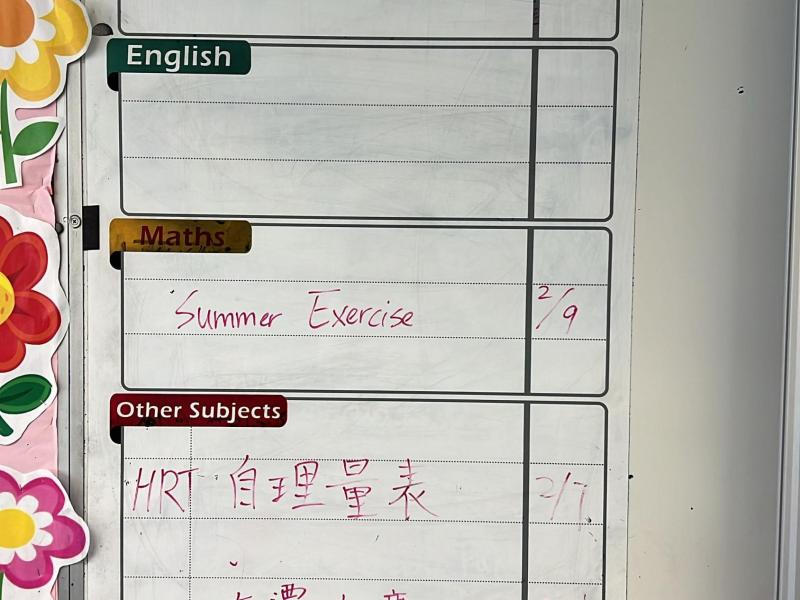 English
Maths
Summer Exercise 2/9
Other Subjects
HRT 自理量表 2/7